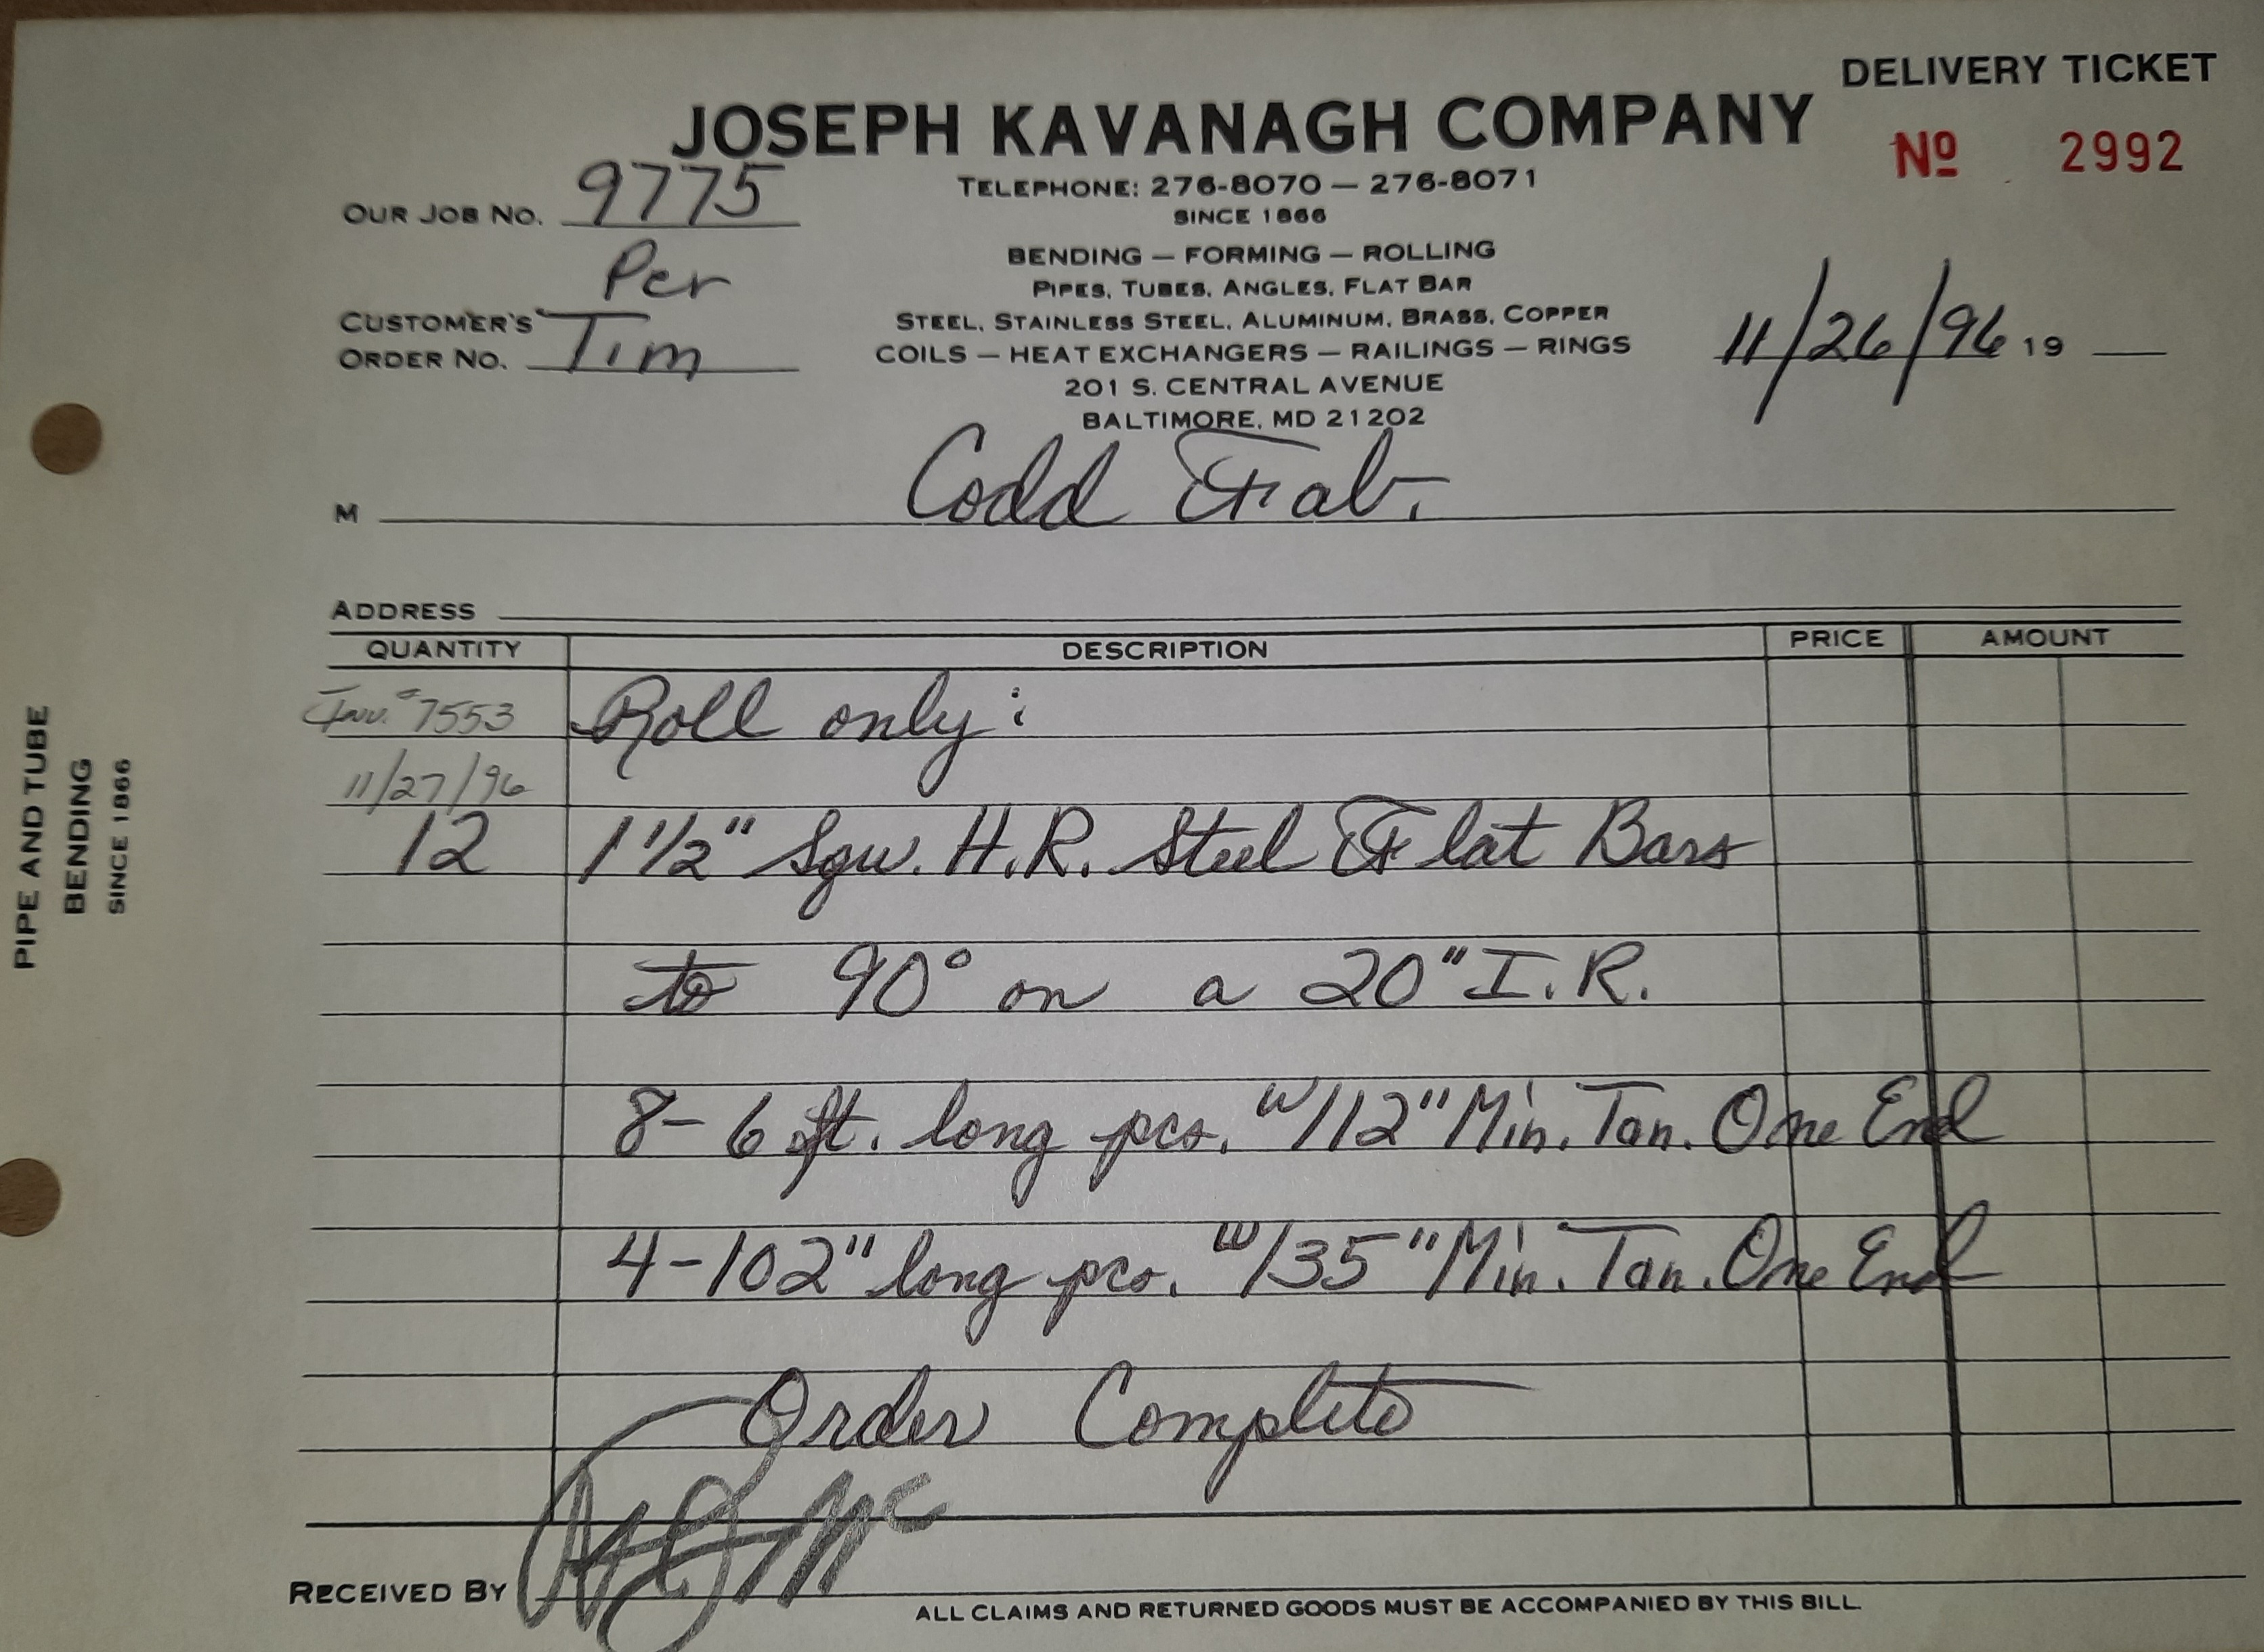 DELIVERY TICKET
JOSEPH KAVANAGH COMPANY
Nº 2992
OUR JOB NO. 9775
TELEPHONE: 276-8070 — 276-8071
SINCE 1866
BENDING — FORMING — ROLLING
PIPES, TUBES, ANGLES, FLAT BAR
STEEL, STAINLESS STEEL, ALUMINUM, BRASS, COPPER
COILS — HEAT EXCHANGERS — RAILINGS — RINGS
201 S. CENTRAL AVENUE
BALTIMORE, MD 21202
Per
CUSTOMER'S
ORDER NO. Tim
11/26/96 19
M Codd Fab.
ADDRESS
QUANTITY DESCRIPTION PRICE AMOUNT
Inv. #7553 Roll only:
11/27/96
12 1 1/2" Squ. H.R. Steel Flat Bars
to 90° on a 20" I.R.
8- 6 ft. long pcs. w/12" Min. Tan. One End
4-102" long pcs. w/35" Min. Tan. One End
Order Complete
RECEIVED BY
ALL CLAIMS AND RETURNED GOODS MUST BE ACCOMPANIED BY THIS BILL.
PIPE AND TUBE
BENDING
SINCE 1866